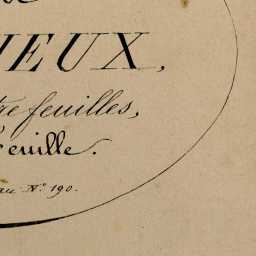 IEUX,
tre feuilles,
Feuille.
au N.º 190.